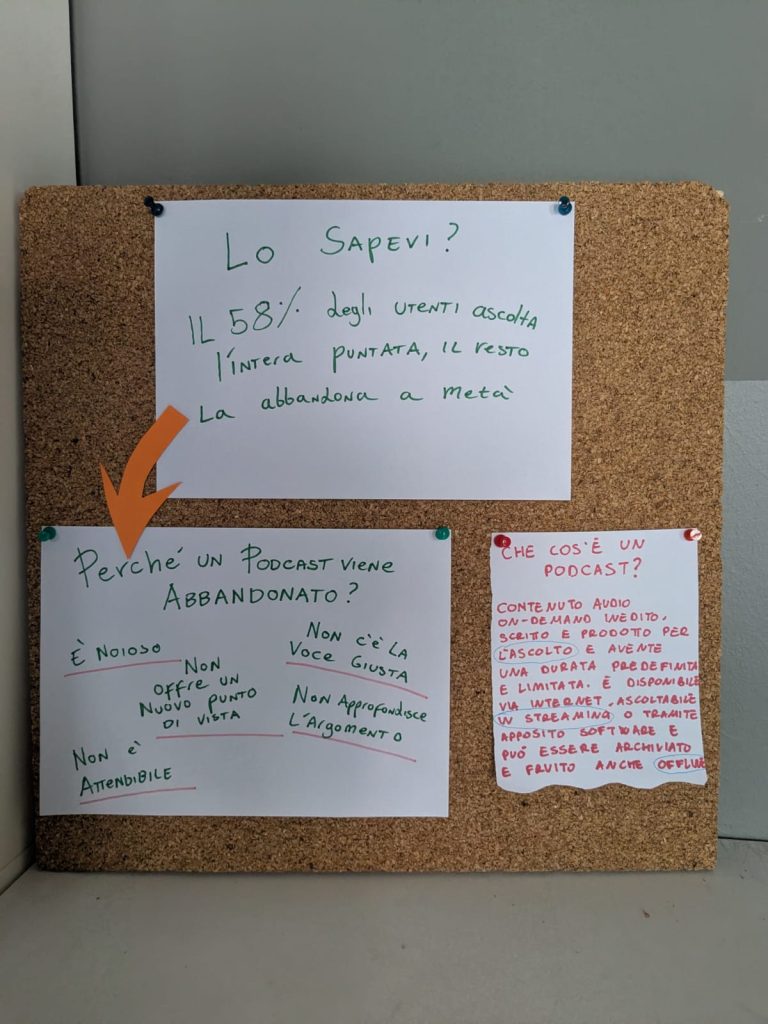 Lo SAPEVI?
IL 58% degli UTENTI ascolta
l'intera PUNTATA, IL resto
La abbandona a metà
Perché UN PODCAST VIENE
ABBANDONATO?
È NOIOSO
NON
OFFRE UN
NUOVO PUNTO
DI VISTA
NON è
ATTENDIBILE
NON c'è LA
VOCE GIUSTA
NON APProfondisce
L'ArgomENTO
CHE COS'È UN
PODCAST?
CONTENUTO AUDIO
ON-DEMAND INEDITO.
SCRITTO E PRODOTTO PER
L'ASCOLTO E AVENTE
UNA DURATA PREDEFINITA
E LIMITATA. È DISPONIBILE
VIA INTERNET. ASCOLTABILE
IN STREAMING O TRAMITE
APPOSITO SOFTWARE E
PUÒ ESSERE ARCHIVIATO
E FRUITO ANCHE OFFLINE